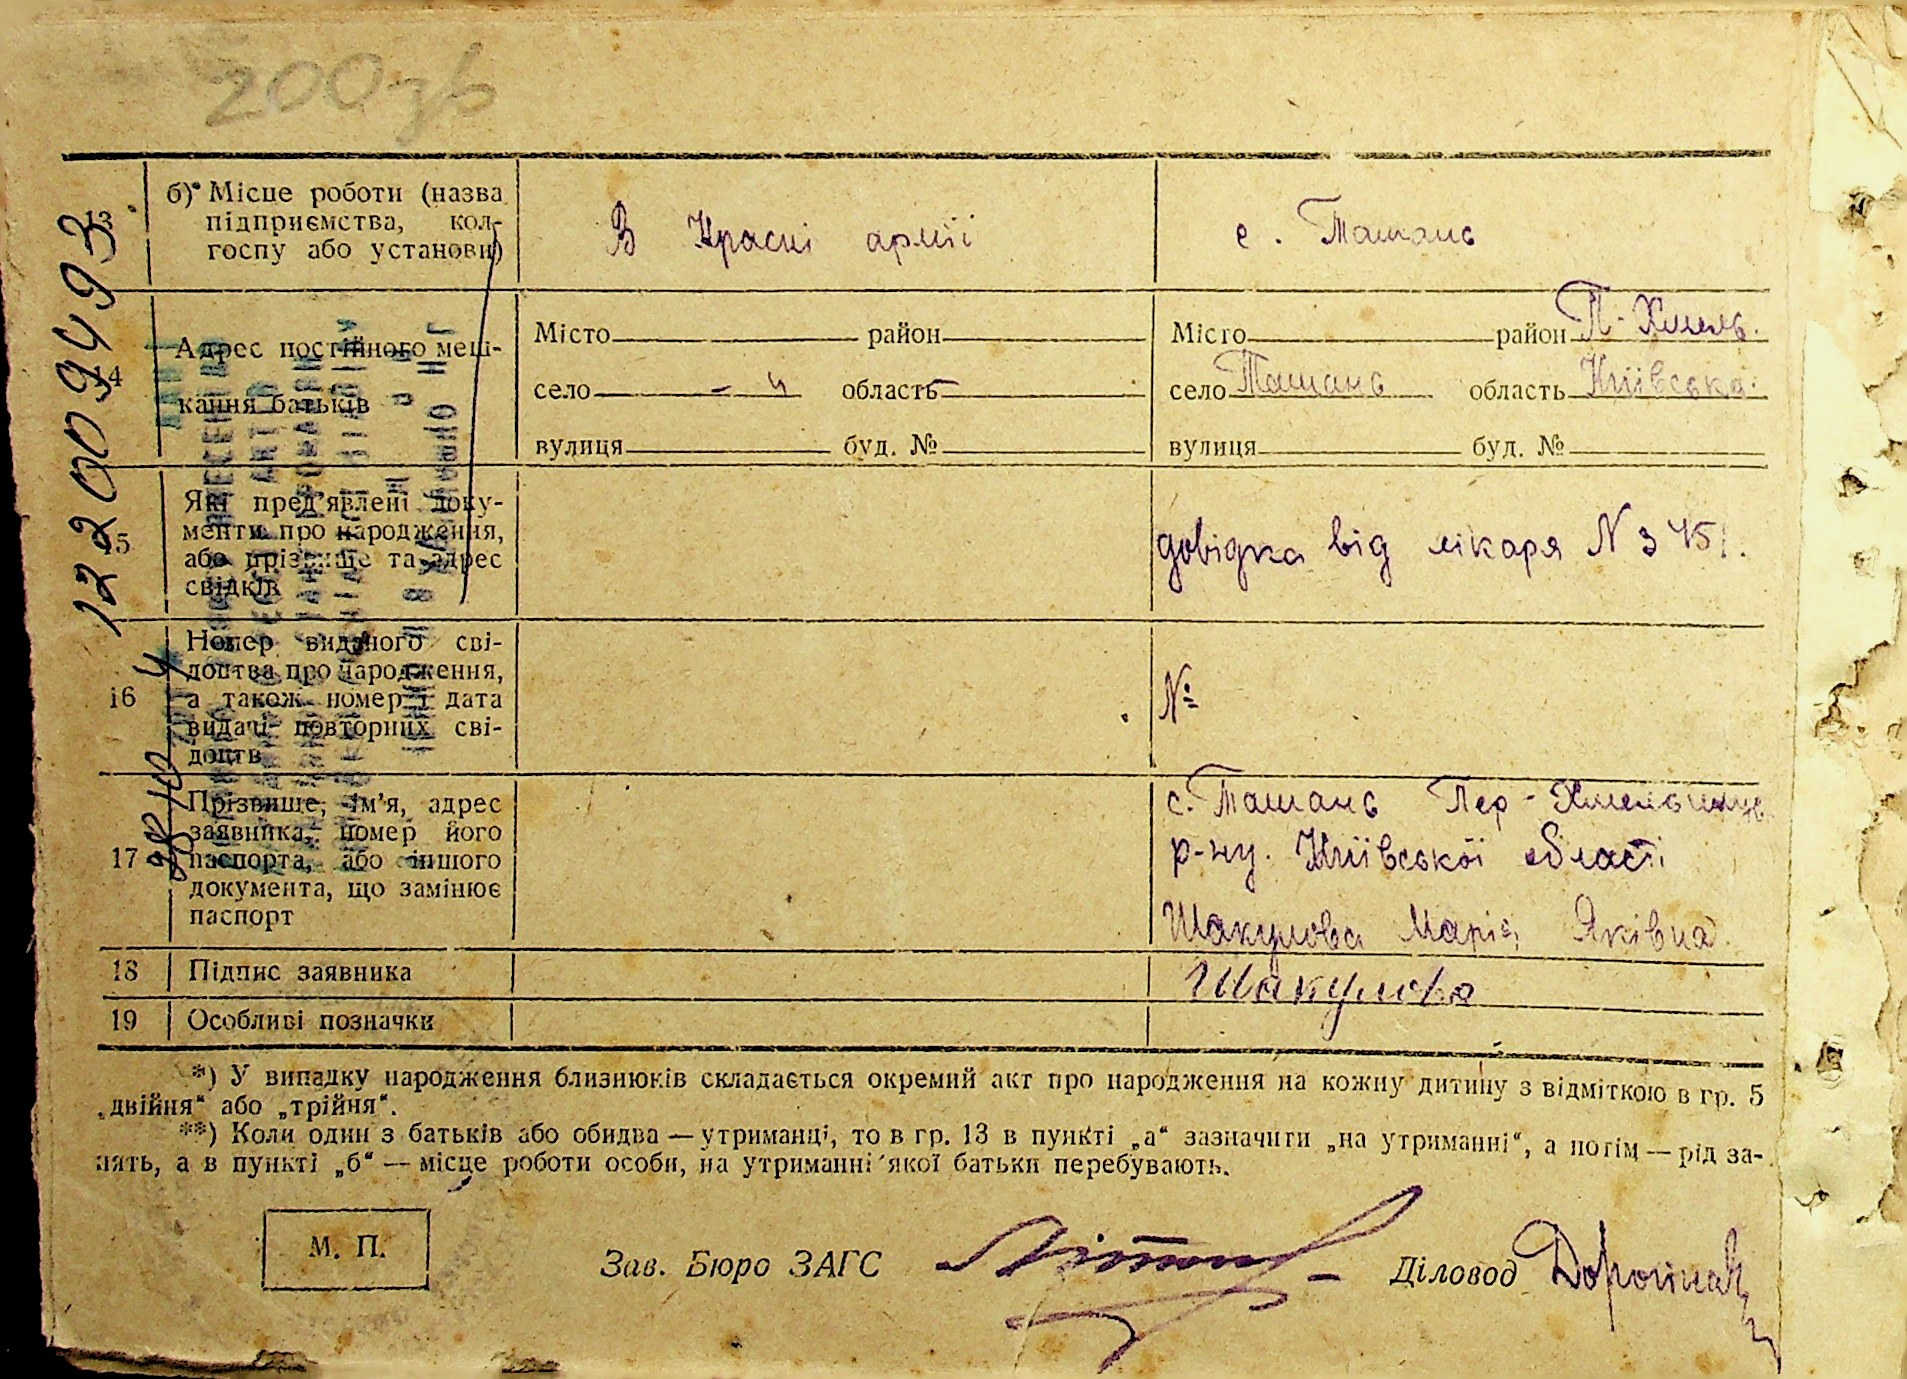 200зв
13 б)* Місце роботи (назва
підприємства, кол-
госпу або установи)
В Красні армії
с. Ташань
14 Адрес постійного меш-
кання батьків
Місто район
село - ч область
вулиця буд. №
Місто район П-Хмель.
село Ташань область Київська.
вулиця буд. №
15 Які пред'явлені доку-
менти про народження,
або прізвище та адрес
свідків
довідка від лікаря N 3451.
16 Номер виданого сві-
доцтва про народження,
а також номер і дата
видачі повторних сві-
доцтв
№
17 Прізвище, ім'я, адрес
заявника, номер його
паспорта, або іншого
документа, що замінює
паспорт
с. Ташань Пер-Хмельницьк.
р-ну. Київської області
Шакулова Марія Яківна.
18 Підпис заявника
Шакулова
19 Особливі позначки
*) У випадку народження близнюків складається окремий акт про народження на кожну дитину з відміткою в гр. 5
„двійня“ або „трійня“.
**) Коли один з батьків або обидва — утриманці, то в гр. 13 в пункті „а“ зазначити „на утриманні“, а потім — рід за-
нять, а в пункті „б“ — місце роботи особи, на утриманні якої батьки перебувають.
М. П.
Зав. Бюро ЗАГС
Діловод
122009493